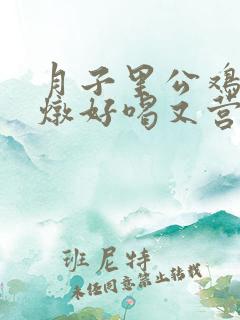 月子里公鸡
燉好喝又营
班尼特
未经同意禁止转载